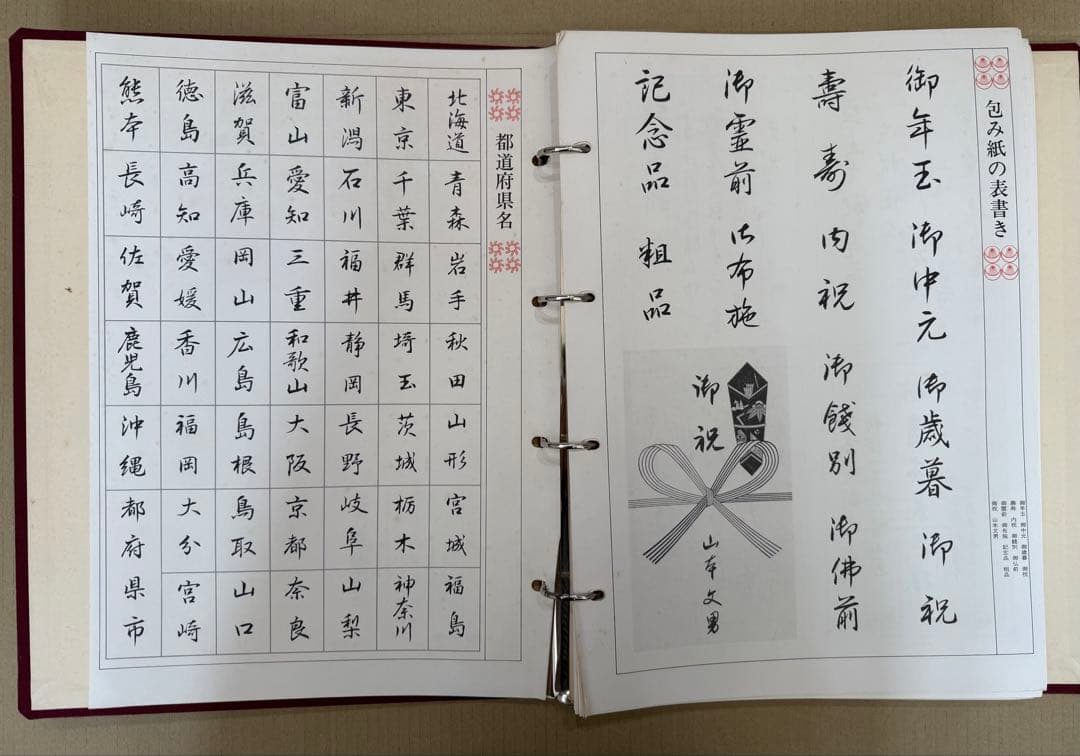 包み紙の表書き
御年玉 御中元 御歳暮 御祝
壽寿 内祝 御餞別 御仏前
御霊前 御布施 記念品 粗品
御祝 山本文男
御年玉 御中元 御歳暮 御祝
壽 寿 内祝 御餞別 御佛前
御霊前 御布施
記念品 粗品
御祝
山本文男
都道府県名
北海道 青森 岩手 秋田 山形 宮城 福島
東京 千葉 群馬 埼玉 茨城 栃木 神奈川
新潟 石川 福井 静岡 長野 岐阜 山梨
富山 愛知 三重 和歌山 大阪 京都 奈良
滋賀 兵庫 岡山 広島 島根 鳥取 山口
徳島 高知 愛媛 香川 福岡 大分 宮崎
熊本 長崎 佐賀 鹿児島 沖縄 都府県市